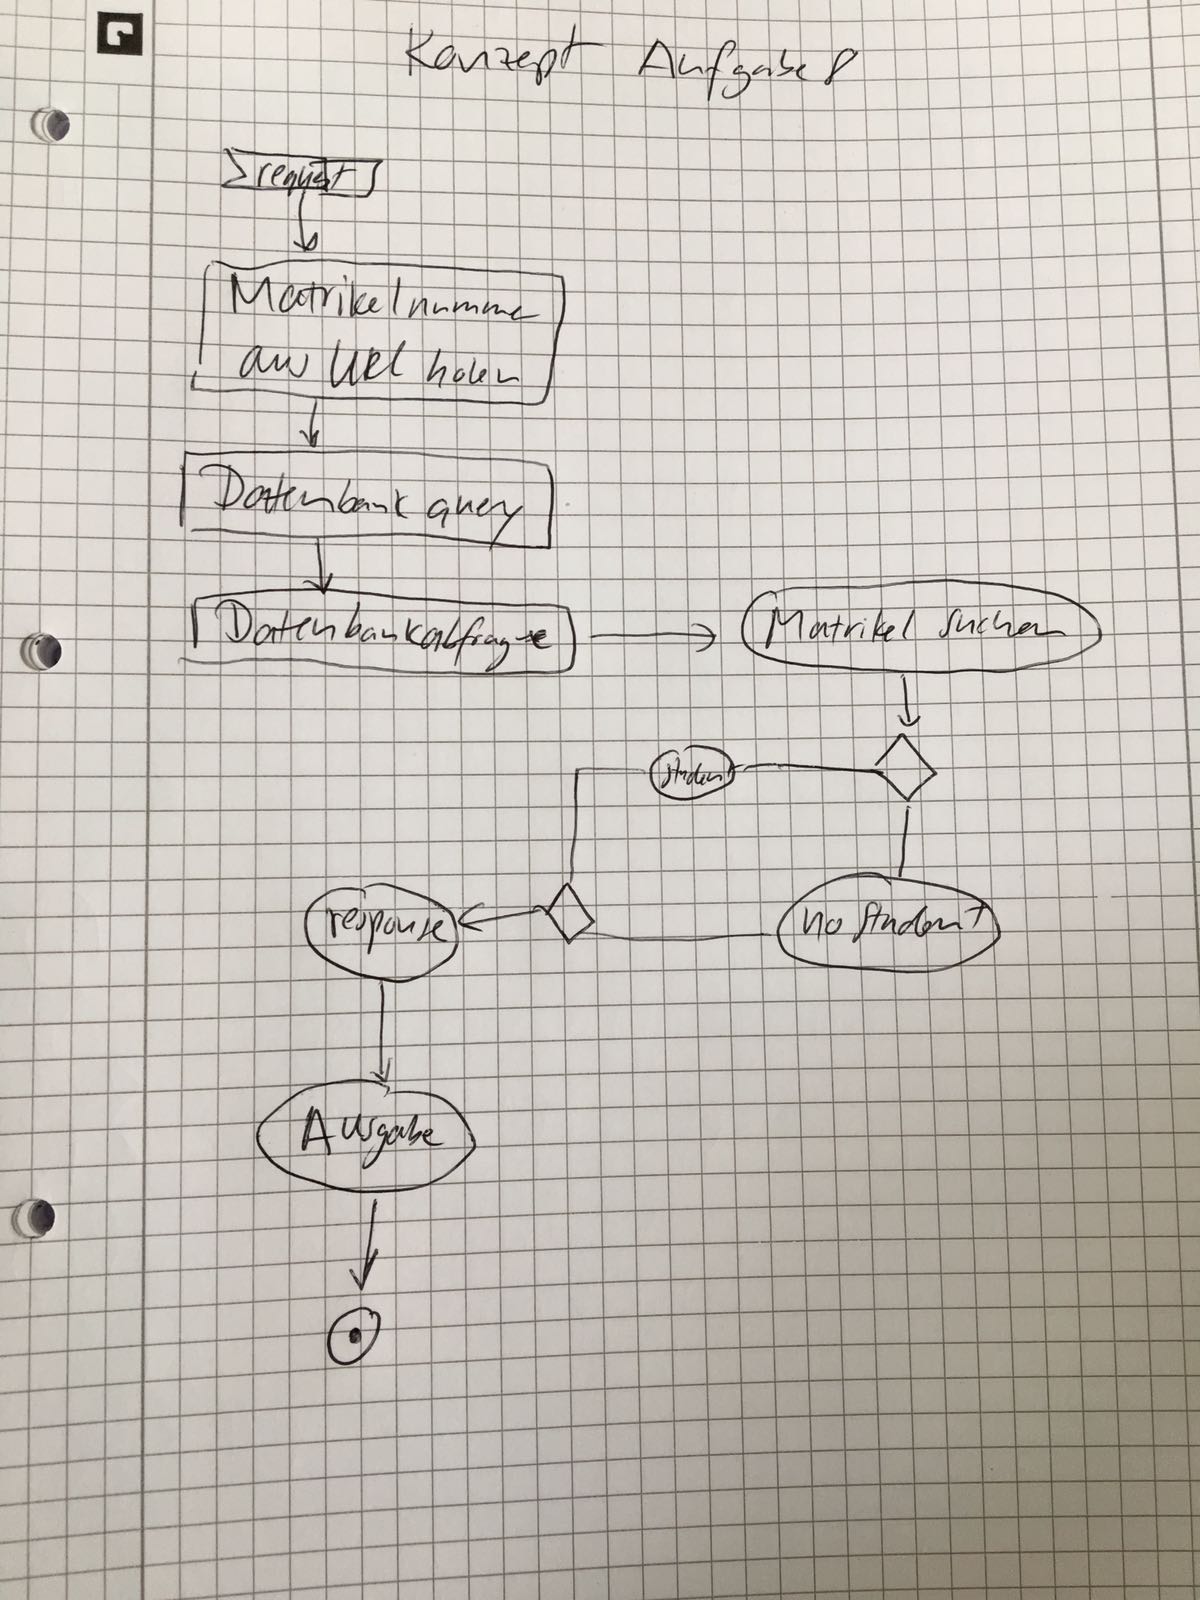 Konzept Aufgabe 8
request
Matrikelnummer
aus URL holen
Datenbank query
Datenbankabfrage
Matrikel suchen
student
no student
response
Ausgabe